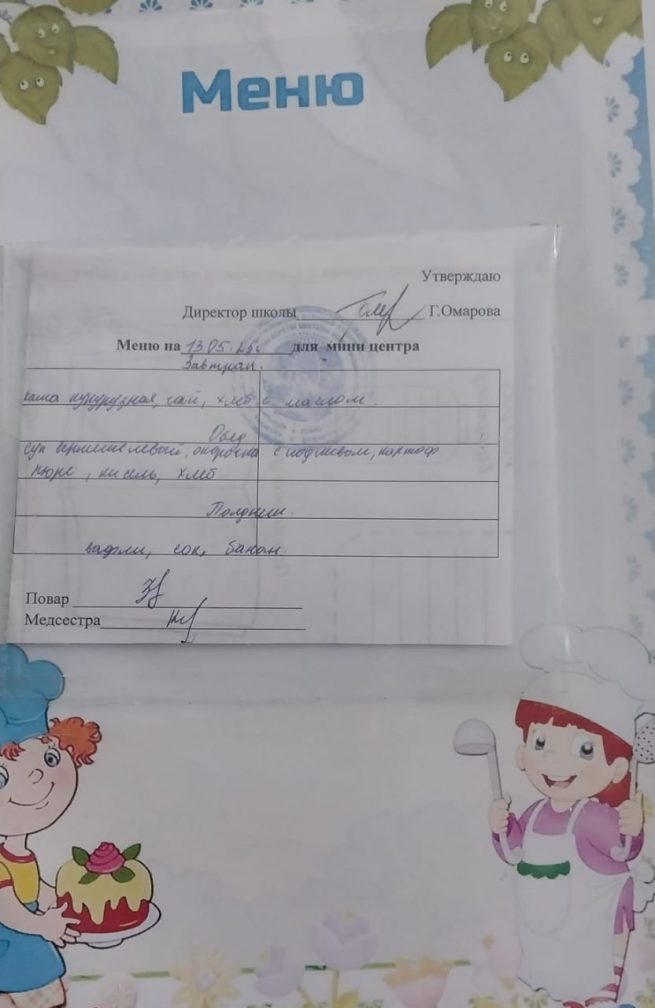 Меню
Утверждаю
Директор школы Г.Омарова
Меню на 13.05.25г для мини центра
Завтрак.
каша кукурузная, чай, хлеб с маслом.
Обед
суп вермишелевый, окорочка с подливом, картоф
пюре, кисель, хлеб
Полдник.
вафли, сок, банан
Повар
Медсестра